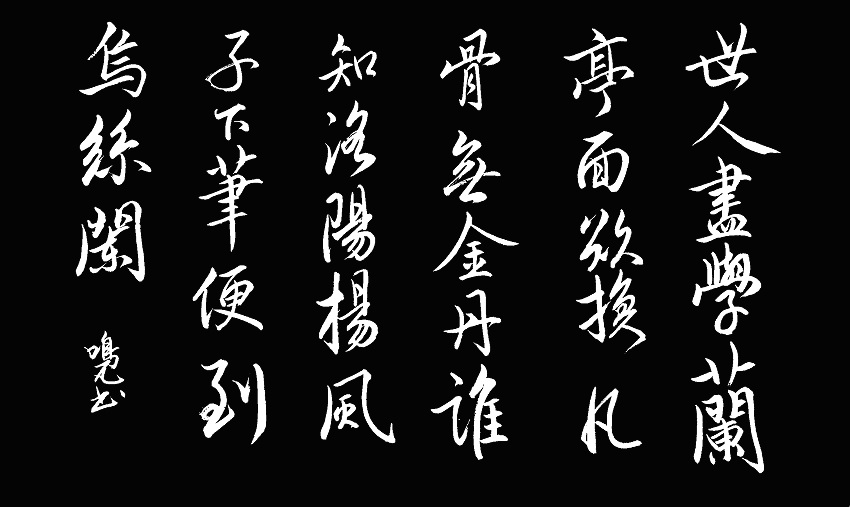 世人盡學蘭
亭面欲換凡
骨無金丹誰
知洛陽楊風
子下筆便到
烏絲闌